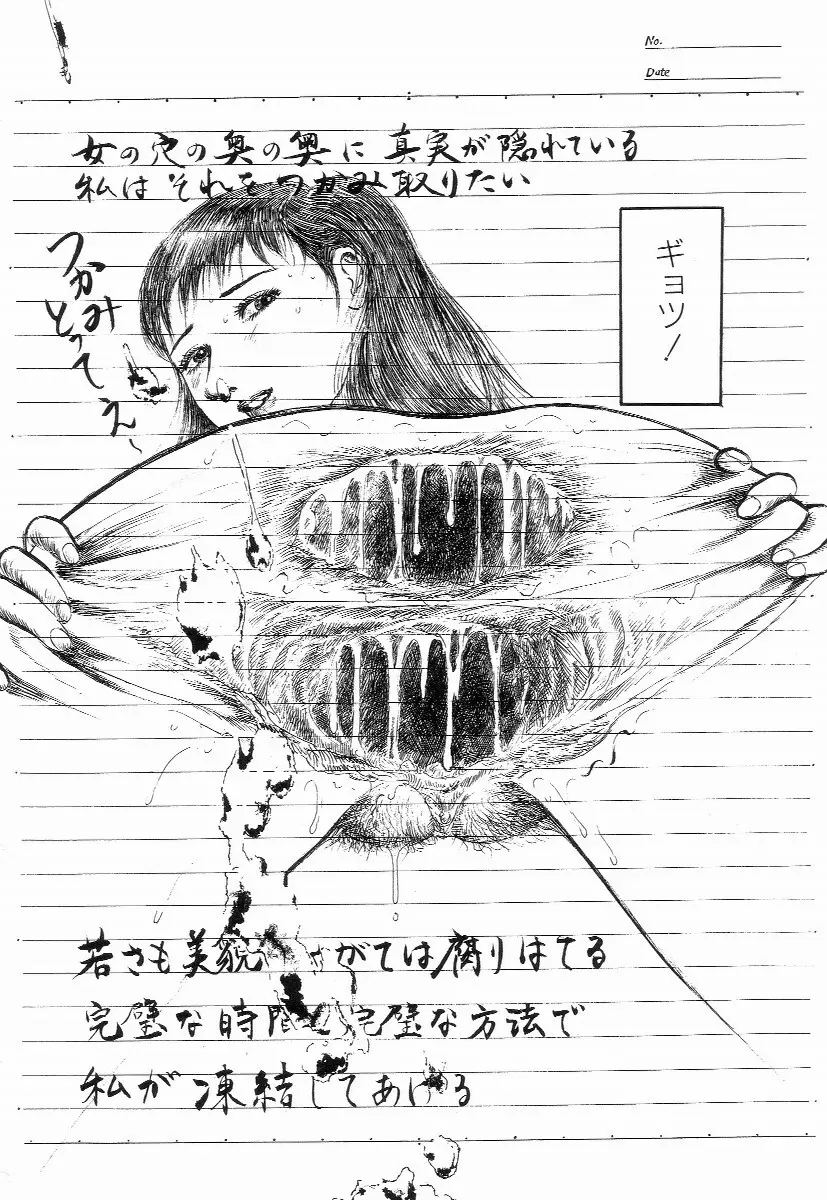 No.
Date
女の穴の奥の奥に真実が隠れている
私はそれをつかみ取りたい
ギョッ!
つかみ
とって
え〜
若さも美貌 がては腐りはてる
完璧な時間 完璧な方法で
私が凍結してあげる